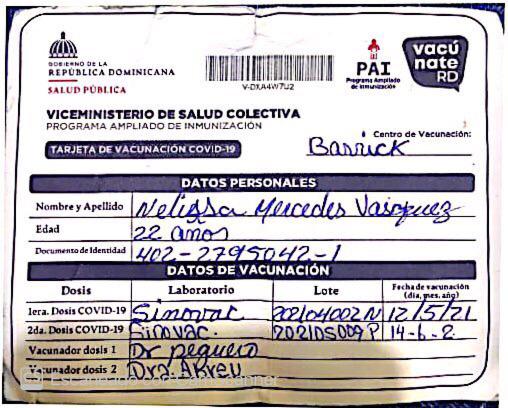 GOBIERNO DE LA
REPÚBLICA DOMINICANA
SALUD PÚBLICA
V-DXA4W7U2
PAI
Programa Ampliado
de Inmunización
vacú
nate
RD
VICEMINISTERIO DE SALUD COLECTIVA
PROGRAMA AMPLIADO DE INMUNIZACIÓN
Centro de Vacunación:
TARJETA DE VACUNACIÓN COVID-19 Barrick
DATOS PERSONALES
Nombre y Apellido Melissa Mercedes Vasquez
Edad 22 años
Documento de Identidad 402-2795042-1
DATOS DE VACUNACIÓN
Dosis Laboratorio Lote Fecha de vacunación
(día, mes, año)
1era. Dosis COVID-19 Sinovac 202104002N 12/5/21
2da. Dosis COVID-19 Sinovac. 202105009P 14-6-2
Vacunador dosis 1 Dr peguero
Vacunador dosis 2 Dra Abreu
Escaneado con CamScanner